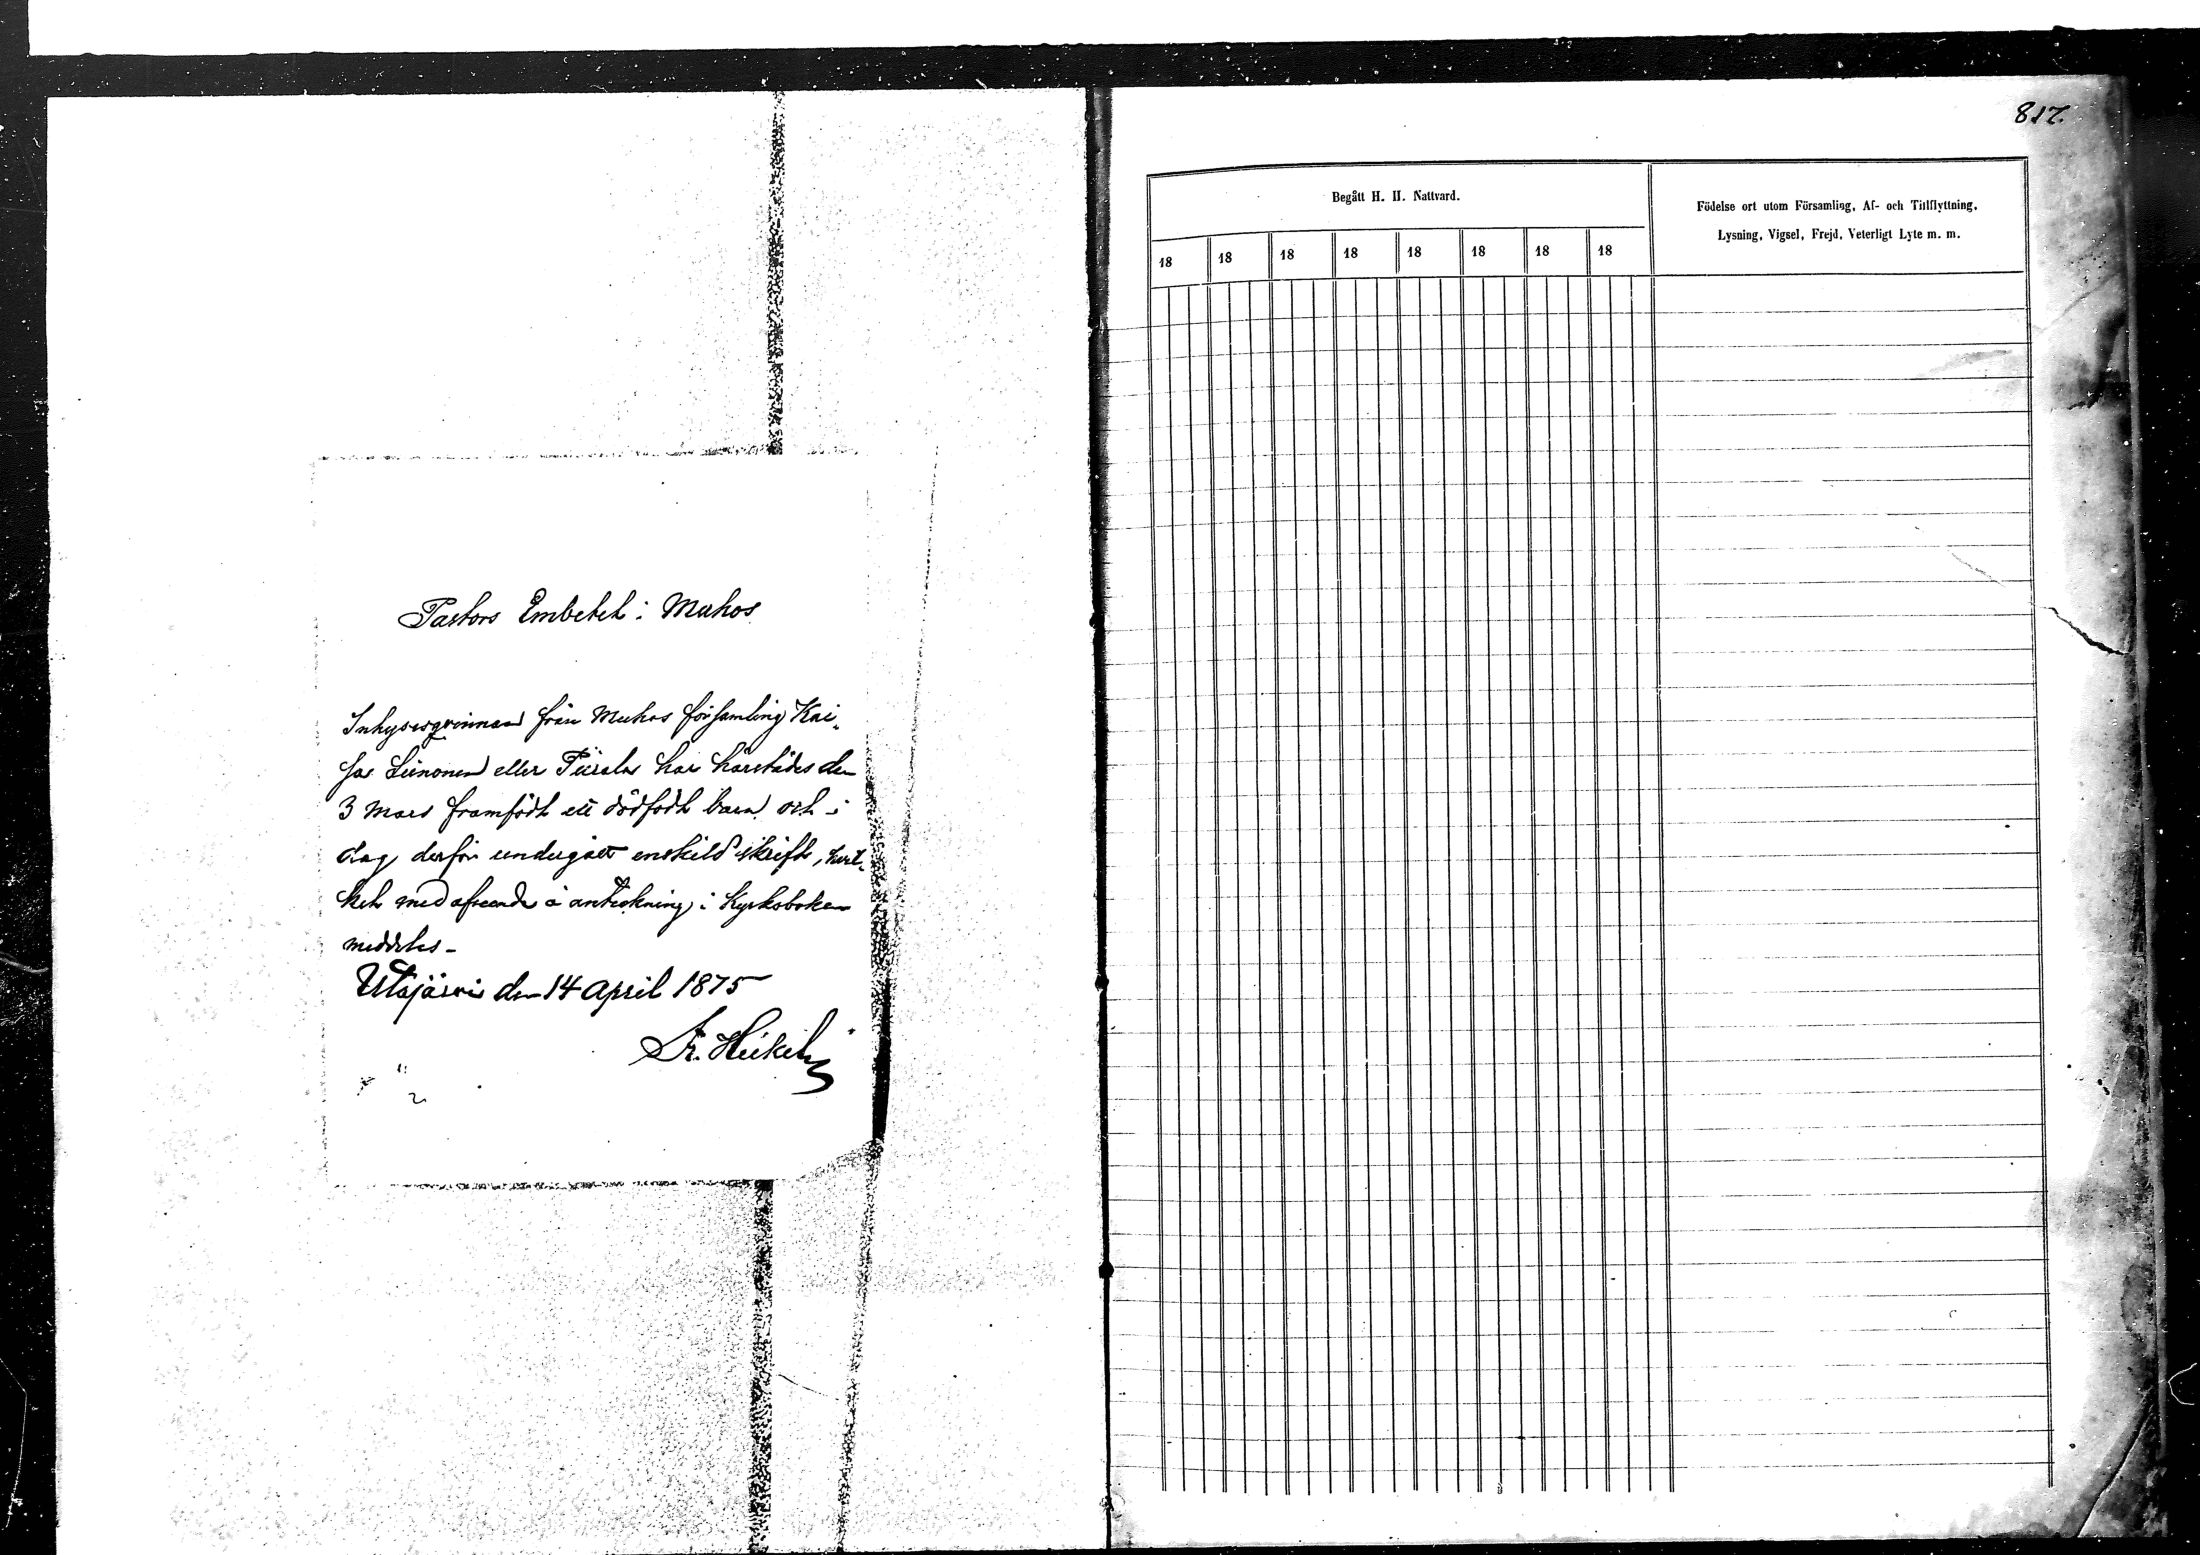 Pastors Embetet i Muhos
Inhysesqvinnan från Muhos församling Kai-
sa Leinonen eller Piirala har härstädes den
3 Mars framfödt ett dödfödt barn och i
dag derför undergått enskild skrift, hvil-
ket med afseende å anteckning i Kyrkoboken
meddeles -
Utajärvi den 14 April 1875
Fr. Heikel
817.
Begått H. H. Nattvard.
Födelse ort utom Församling, Af- och Tillflyttning,
Lysning, Vigsel, Frejd, Veterligt Lyte m. m.
18 18 18 18 18 18 18 18